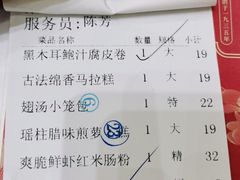 服务员:陈芳
菜品名称 数量 规格 小计
黑木耳鲍汁腐皮卷 1 大 19
古法绵香马拉糕 1 大 19
翅汤小笼包 1 特 22
瑶柱腊味煎萝 糕 1 大 19
爽脆鲜虾红米肠粉 1 精 32